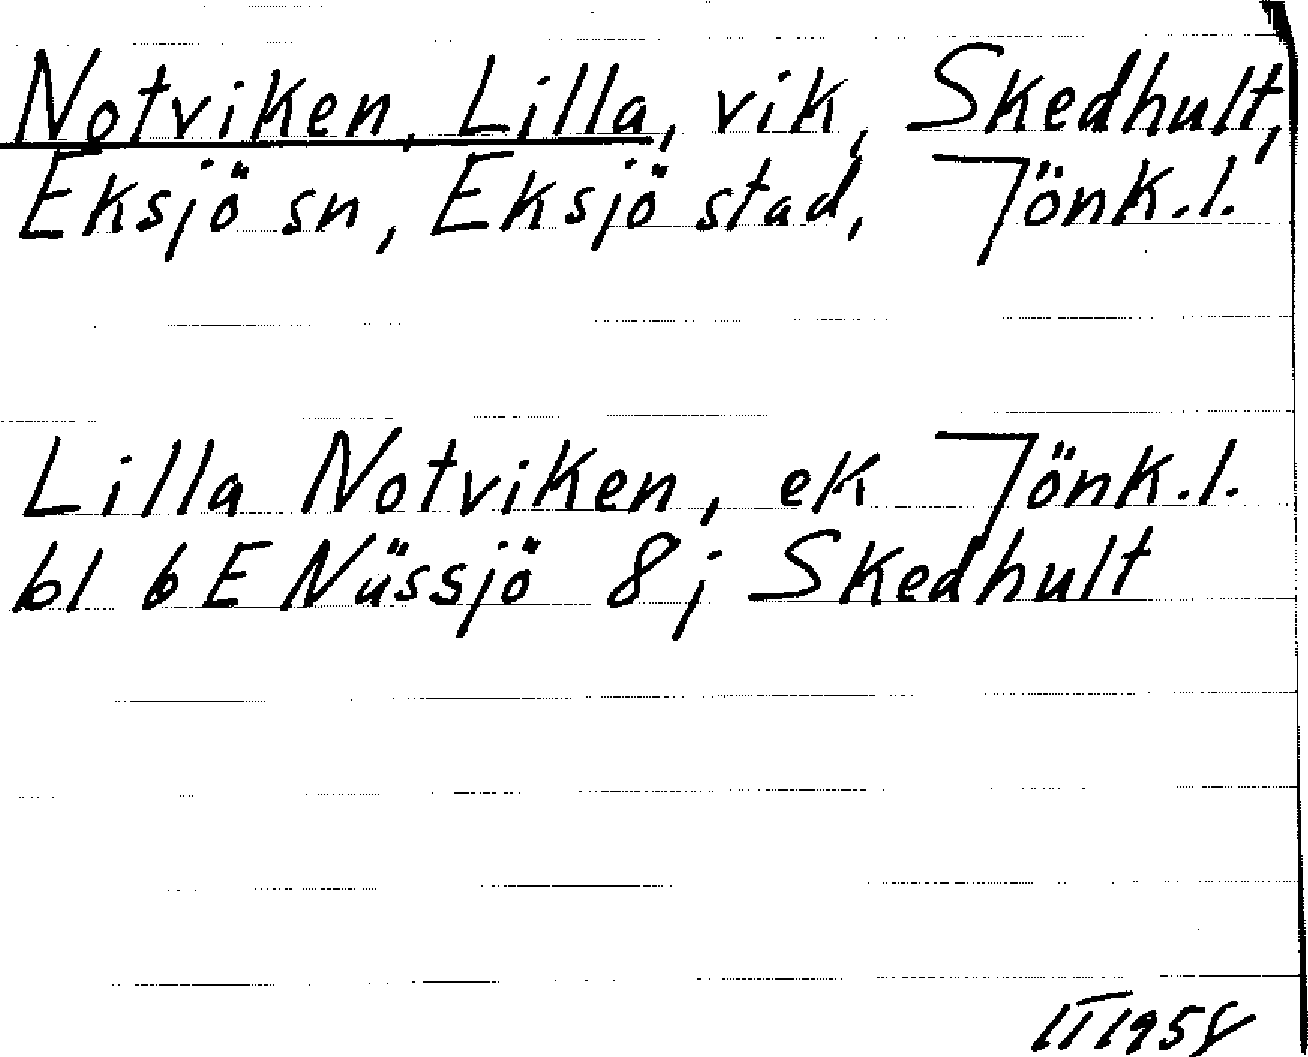 Notviken, Lilla, vik, Skedhult,
Eksjö sn, Eksjö stad, Jönk.l.
Lilla Notviken, ek Jönk.l.
bl 6 E Nässjö 8 j Skedhult
II 1958